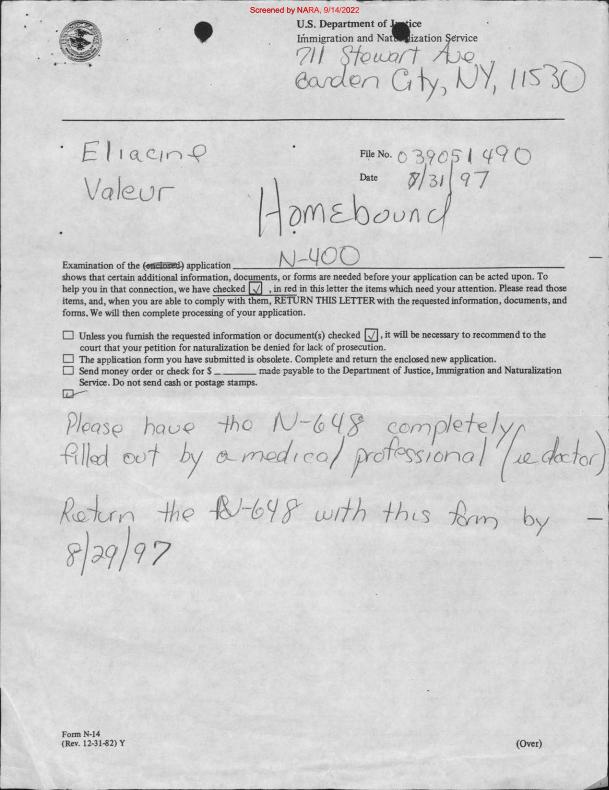 Screened by NARA, 9/14/2022
U.S. Department of Justice
Immigration and Naturalization Service
711 Stewart Ave
Garden City, NY, 11530
Eliacine
Valeur
File No. 039051490
Date 7/31/97
Homebound
Examination of the (enclosed) application N-400
shows that certain additional information, documents, or forms are needed before your application can be acted upon. To
help you in that connection, we have checked ☑, in red in this letter the items which need your attention. Please read those
items, and, when you are able to comply with them, RETURN THIS LETTER with the requested information, documents, and
forms. We will then complete processing of your application.
☐ Unless you furnish the requested information or document(s) checked ☑, it will be necessary to recommend to the
court that your petition for naturalization be denied for lack of prosecution.
☐ The application form you have submitted is obsolete. Complete and return the enclosed new application.
☐ Send money order or check for $ _ ______ made payable to the Department of Justice, Immigration and Naturalization
Service. Do not send cash or postage stamps.
☑
Please have the N-648 completely
filled out by a medical professional (ie doctor)
Return the N-648 with this form by
8/29/97
Form N-14
(Rev. 12-31-82) Y
(Over)